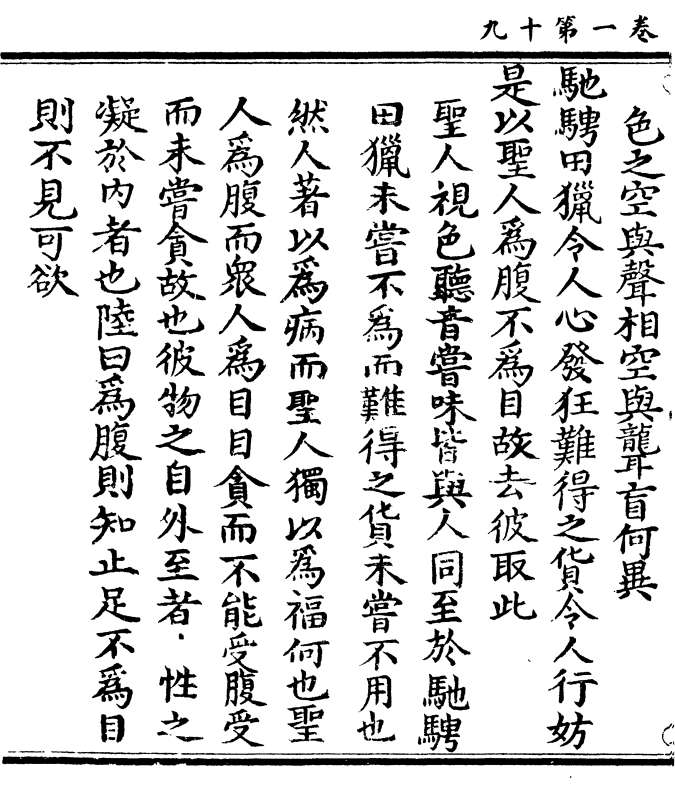 卷一第十九
色之空與聲相空與聾盲何異
馳騁田獵令人心發狂難得之貨令人行妨
是以聖人爲腹不爲目故去彼取此
聖人視色聽音嘗味皆與人同至於馳騁
田獵未嘗不爲而難得之貨未嘗不用也
然人著以爲病而聖人獨以爲福何也聖
人爲腹而衆人爲目目貪而不能受腹受
而未嘗貪故也彼物之自外至者性之
凝於內者也陸曰爲腹則知止足不爲目
則不見可欲